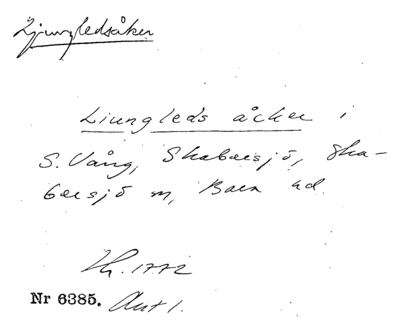 Ljungledsåker
Liungleds åcker i
S. Vång, Skabersjö, Ska-
bersjö sn, Bara hd.
Lh. 1772
Nr 6385. Akt 1.